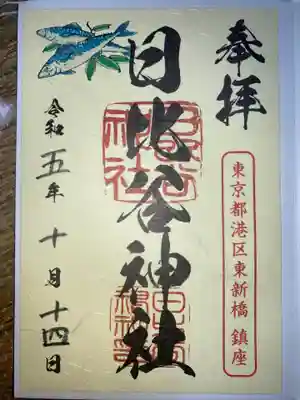 奉拝
東京都港区東新橋 鎮座
日比谷神社
令和五年十月十四日